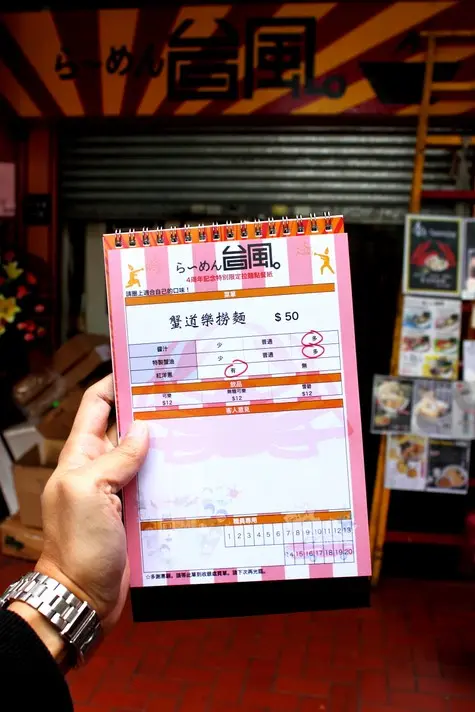 らーめん 台風
らーめん 台風。
4周年記念特別限定拉麵點餐紙
請圈上適合自己的口味！
菜單
蟹道樂撈麵 $50
醬汁 少 普通 多
特製蟹油 少 普通 多
紅洋蔥 有 無
飲品
可樂 無糖可樂 雪碧
$12 $12 $12
客人意見
職員專用
1 2 3 4 5 6 7 8 9 10 11 12 13
14 15 16 17 18 19 20
☆多謝惠顧。請等此單到收銀處買單。請下次再光臨。